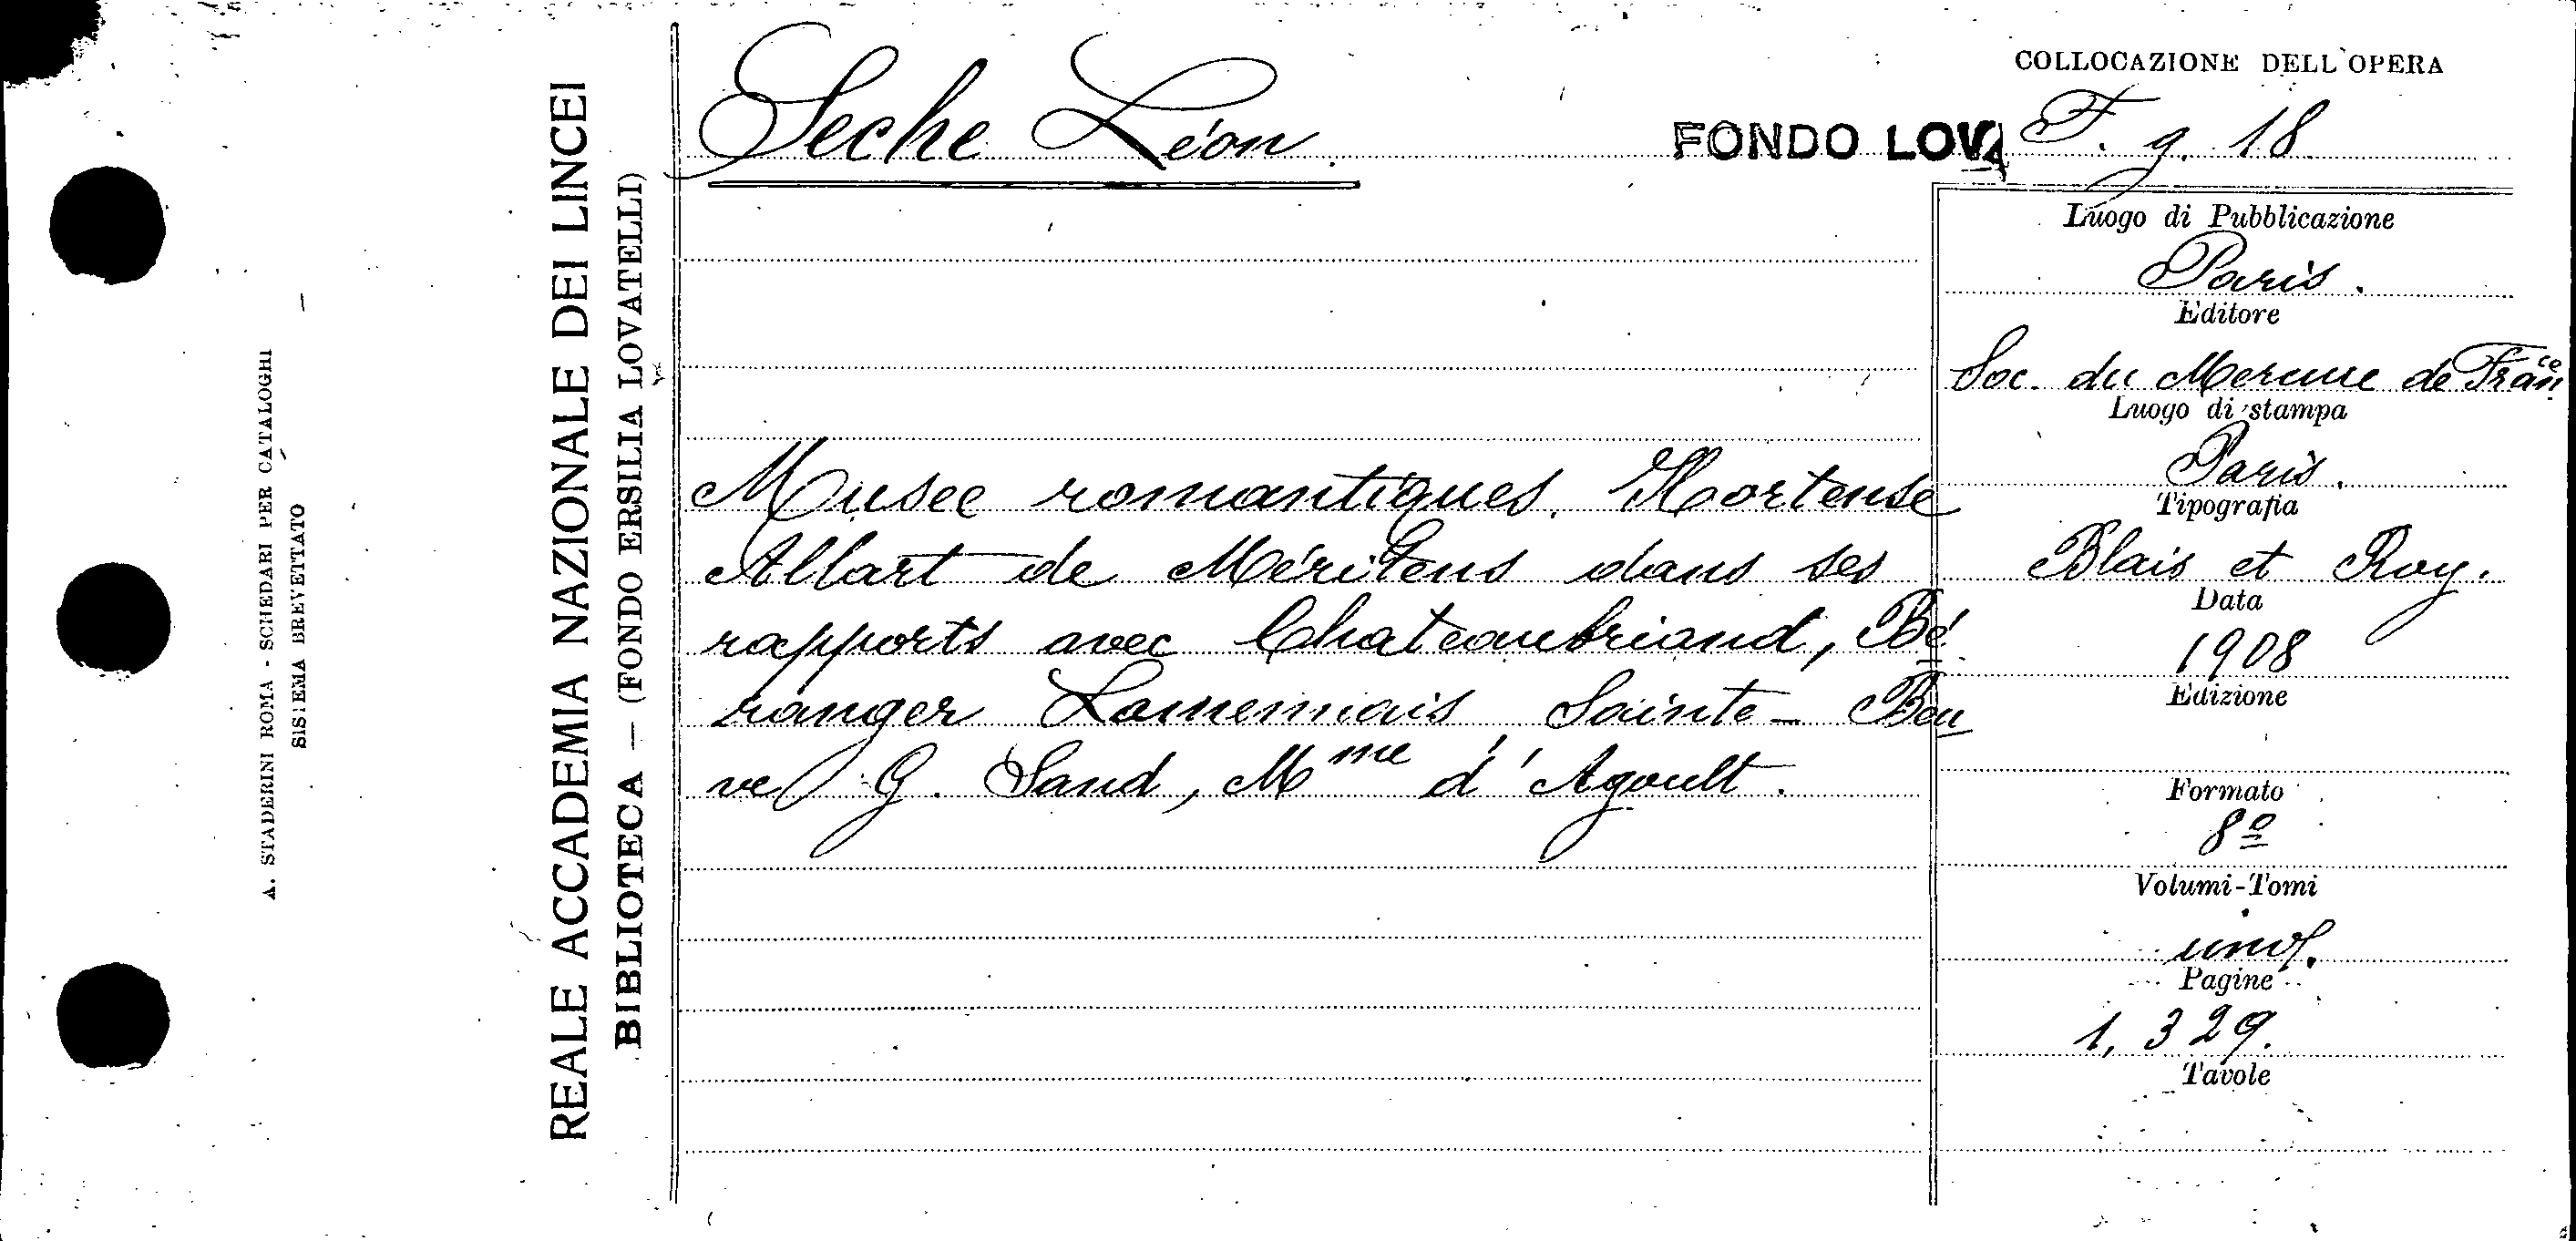 A. STADERINI ROMA - SCHEDARI PER CATALOGHI
SISTEMA BREVETTATO
REALE ACCADEMIA NAZIONALE DEI LINCEI
BIBLIOTECA — (FONDO ERSILIA LOVATELLI)
Seche Léon.
COLLOCAZIONE DELL'OPERA
FONDO LOVA F. g. 18
Musee romantiques. Hortense
Allart de Méritens dans ses
rapports avec Chateaubriand, Bé
ranger Lamennais Sainte-Beu
ve G. Sand, Mme d'Agoult.
Luogo di Pubblicazione
Paris.
Editore
Soc. du Mercure de France
Luogo di stampa
Paris.
Tipografia
Blais et Roy.
Data
1908
Edizione
Formato
8º
Volumi-Tomi
Pagine
1, 329.
Tavole